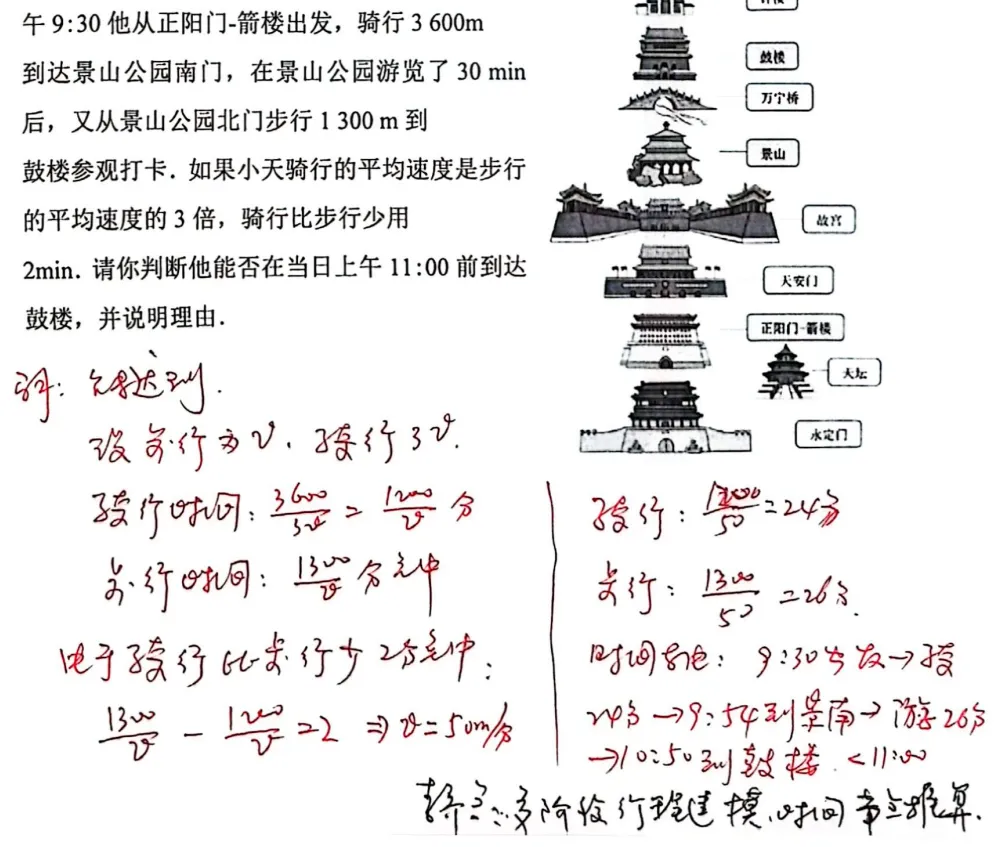 午 9:30 他从正阳门-箭楼出发，骑行 3 600m
到达景山公园南门，在景山公园游览了 30 min
后，又从景山公园北门步行 1 300 m 到
鼓楼参观打卡．如果小天骑行的平均速度是步行
的平均速度的 3 倍，骑行比步行少用
2min．请你判断他能否在当日上午 11:00 前到达
鼓楼，并说明理由．
鼓楼
万宁桥
景山
故宫
天安门
正阳门-箭楼
天坛
永定门
解：能达到．
设步行为v．骑行3v．
骑行时间：3600/3v = 1200/v 分
步行时间：1300/v 分钟
由于骑行比步行少2分钟：
1300/v - 1200/v = 2 ⇒ v=50m/分
骑行：1200/50 = 24分
步行：1300/50 = 26分．
时间： 9:30出发→骑
24分→9:54到景南→游 26分
→10:50到鼓楼．<11:00
多阶段行程建模、时间推算．